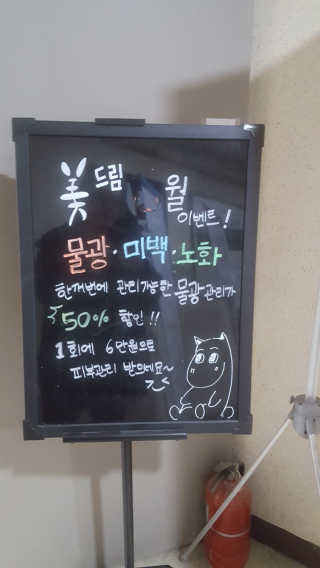 美드림 월
이벤트!
물광·미백·노화
한꺼번에 관리가능한 물광관리가
50% 할인!!
1회에 6만원으로
피부관리 받으세요~